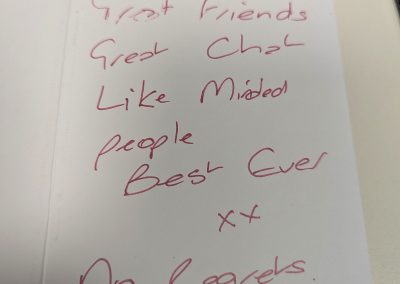 Great Friends
Great Chat
Like Minded
people
Best Ever
xx
No Regrets.